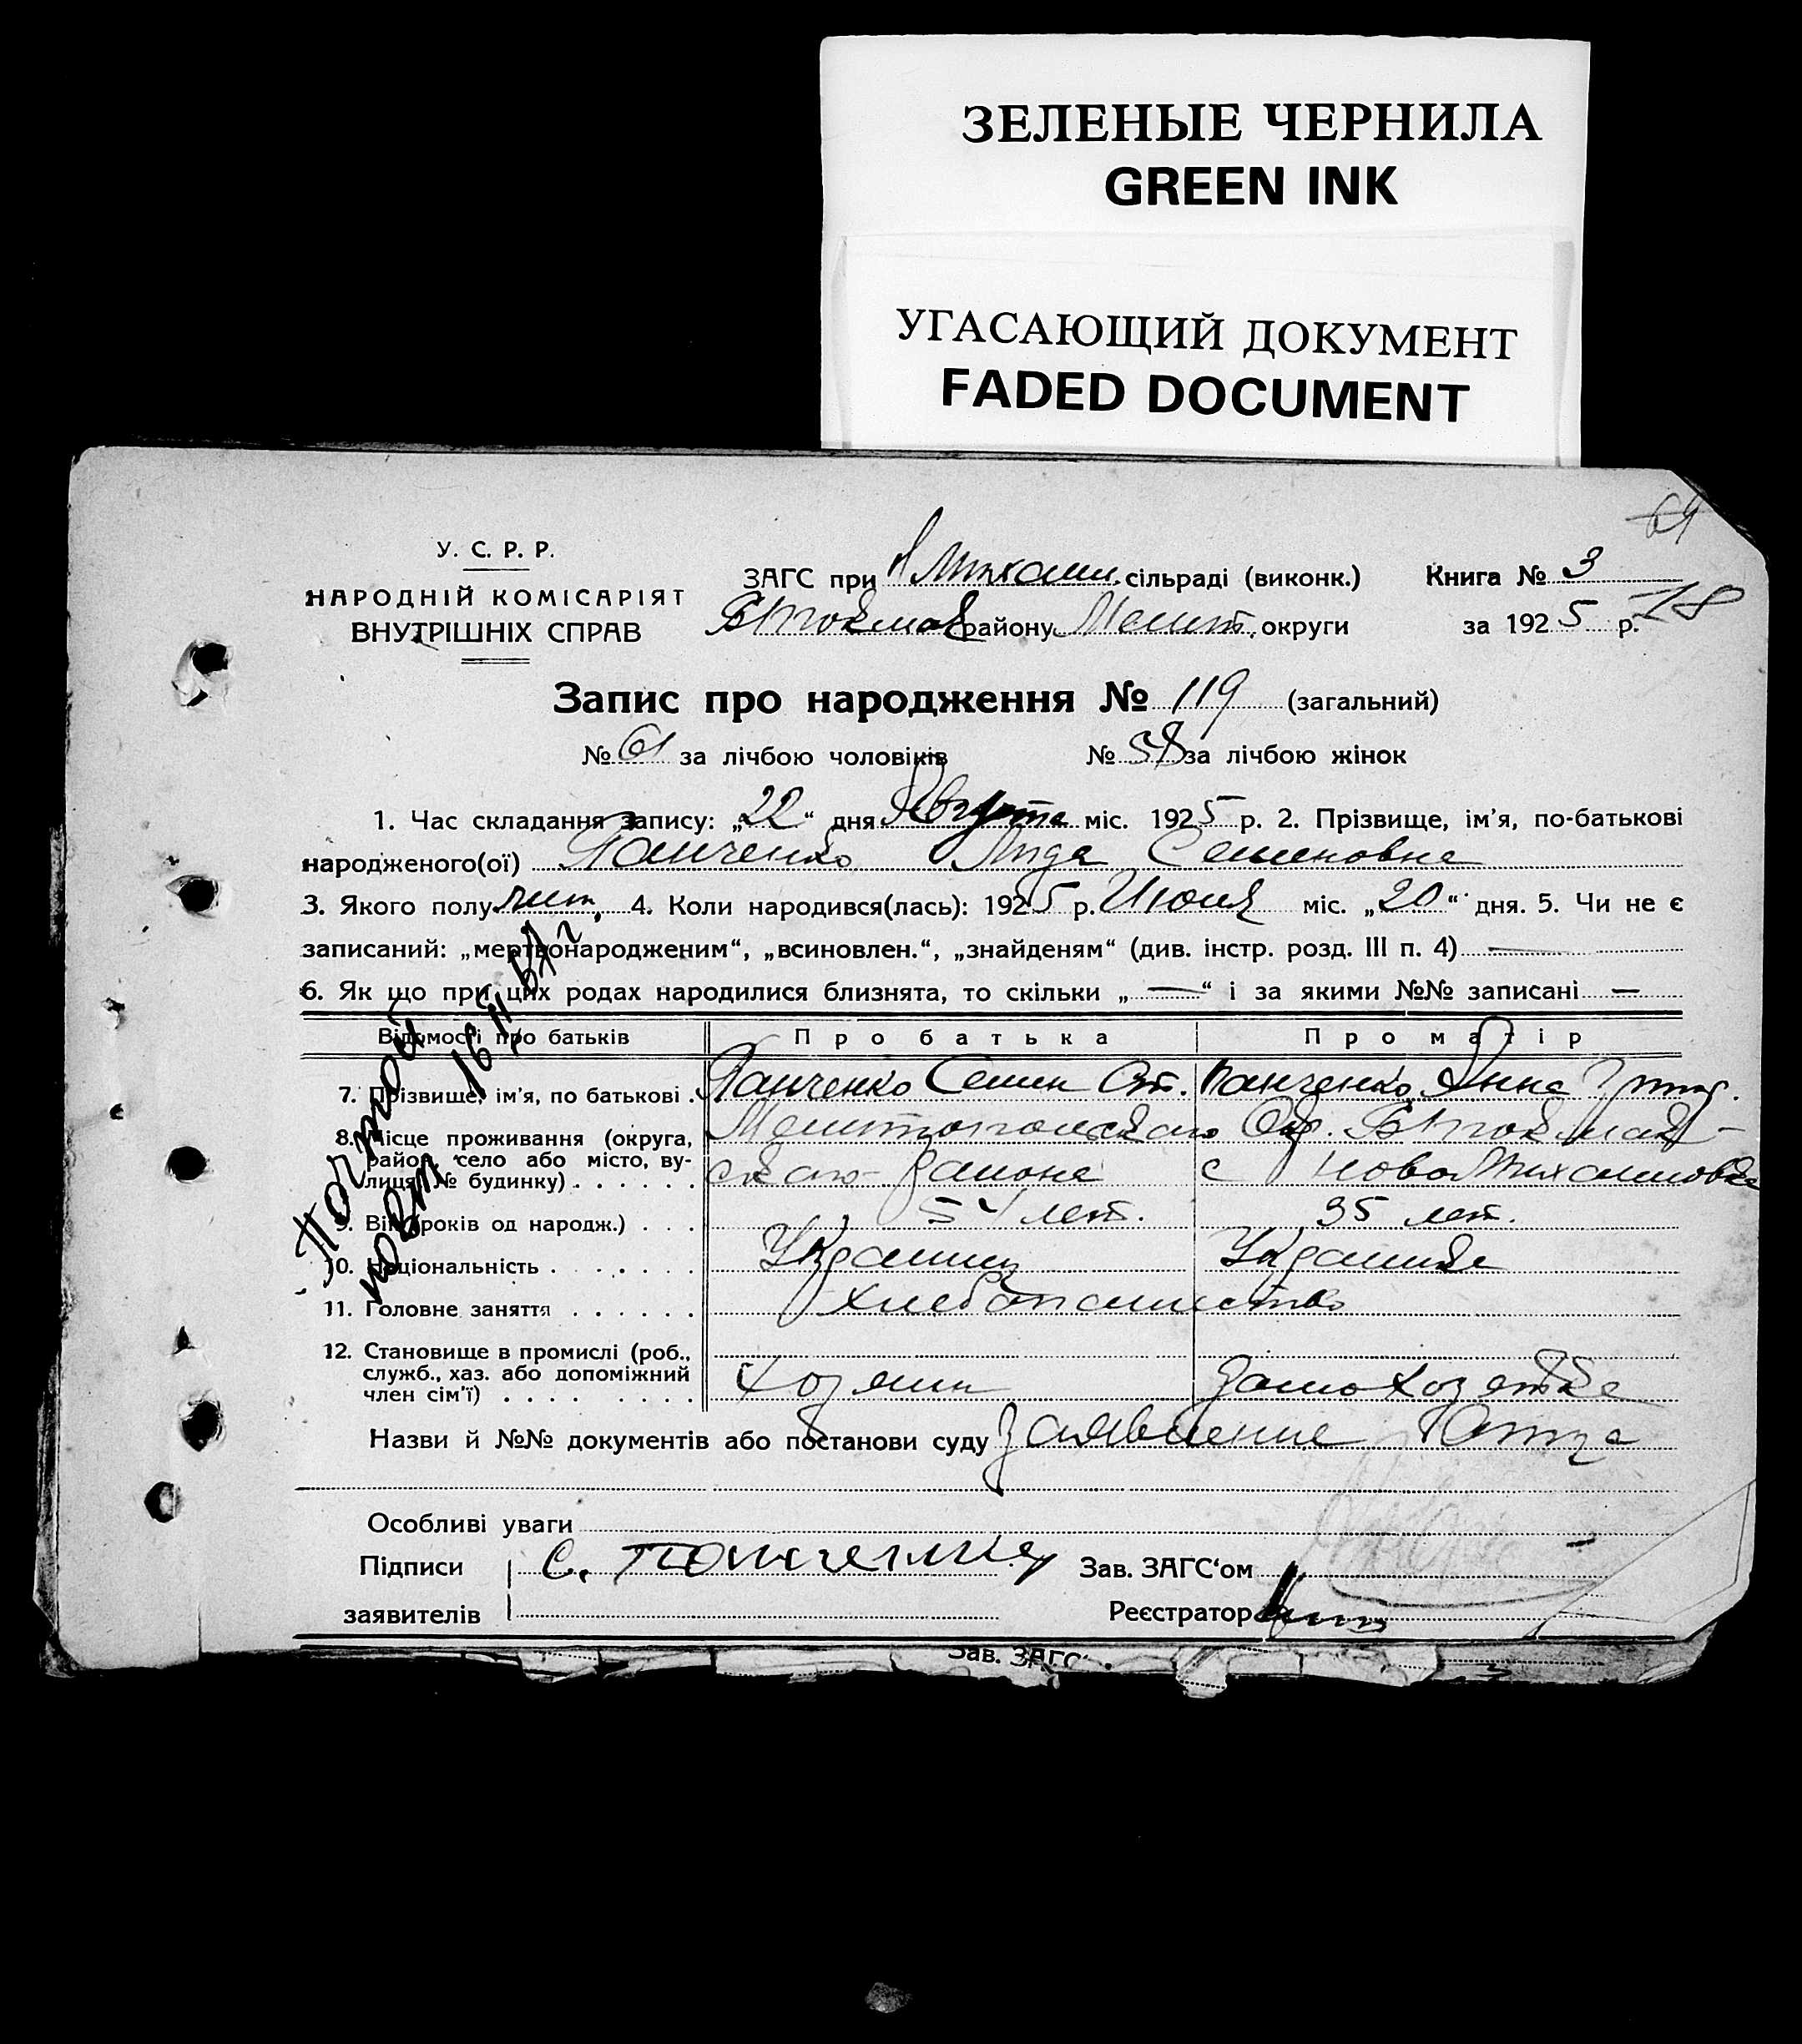 ЗЕЛЕНЫЕ ЧЕРНИЛА
GREEN INK
УГАСАЮЩИЙ ДОКУМЕНТ
FADED DOCUMENT
69
У. С. Р. Р.
НАРОДНІЙ КОМІСАРІЯТ
ВНУТРІШНІХ СПРАВ
ЗАГС при Н Михайл. сільраді (виконк.) Книга № 3
району Мелит. округи за 1925 р. 18
Запис про народження № 119 (загальний)
№ 61 за лічбою чоловіків № 58 за лічбою жінок
1. Час складання запису: „22“ дня Августа міс. 1925 р. 2. Прізвище, ім'я, по-батькові
народженого(ої) Панченко Лида Семеновна
3. Якого полу 4. Коли народився(лась): 1925 р. Июля міс. „20“ дня. 5. Чи не є
записаний: „мертвонародженим“, „всиновлен.“, „знайденям“ (див. інстр. розд. III п. 4) —
6. Як що при цих родах народилися близнята, то скільки „—“ і за якими №№ записані —
Відомості про батьків Про батька Про матір
7. Прізвище, ім'я, по батькові . Панченко Семен Панченко Анна Григ.
8. Місце проживання (округа, Мелитопольского Окр.
район, село або місто, ву-
лиця, № будинку) . . . . . . ского района с Ново Михайловка
9. Вік (років од народж.) . . . 54 лет. 35 лет.
10. Національність . . . . . . Украинец Украинка
11. Головне заняття . . . . . . Хлебопашество
12. Становище в промислі (роб.,
служб., хаз. або допоміжний
член сім'ї) . . . . . . . . Хозяин домохозяйка
Назви й №№ документів або постанови суду Заявление Отца
Особливі уваги
Підписи С. Панченко Зав. ЗАГС‘ом
заявителів Реєстратор
Повторной
16 II
Зав. ЗАГС‘